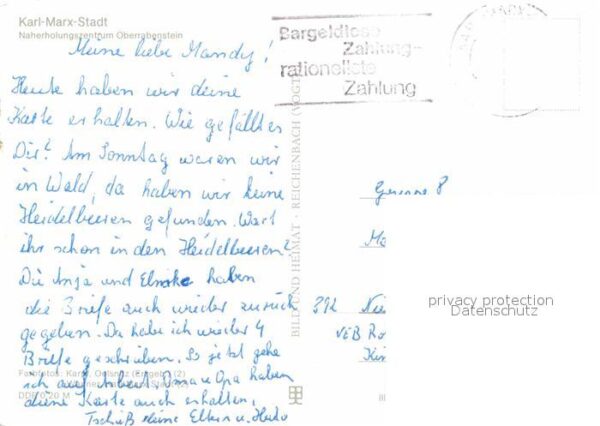 Karl-Marx-Stadt
Naherholungszentrum Oberrabenstein
Meine liebe Mandy!
Heute haben wir deine
Karte erhalten. Wie gefällt es
Dir? Am Sonntag waren wir
in Wald, da haben wir keine
Heidelbeeren gefunden. Wart
ihr schon in den Heidelbeeren?
Die Anja und haben
die Briefe auch wieder zurück
gegeben. Da habe ich wieder 4
Briefe geschrieben. So jetzt gehe
ich auf Arbeit. Oma u Opa haben
deine Karte auch erhalten.
Tschüß deine Eltern u.
Farbfotos: Oelsnitz (Erzgeb) (2)
DDR 0,20 M
BILD UND HEIMAT · REICHENBACH (VOGT
Bargeldlose
Zahlung-
rationellste
Zahlung
8
Ma
392 Nie
VEB Ro
privacy protection
Datenschutz